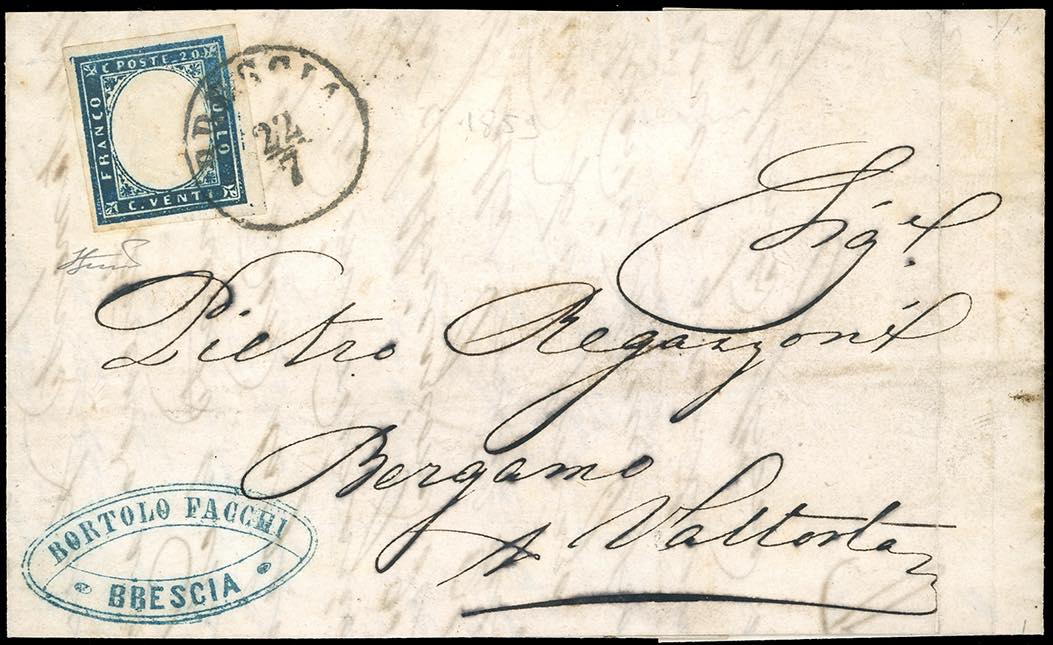 C. POSTE. 20
FRANCO
BOLLO
C. VENTI
BRESCIA
22
7
1859
Sigr.
Pietro Regazzoni
Bergamo
A Valtorta
BORTOLO FACCHI
BRESCIA